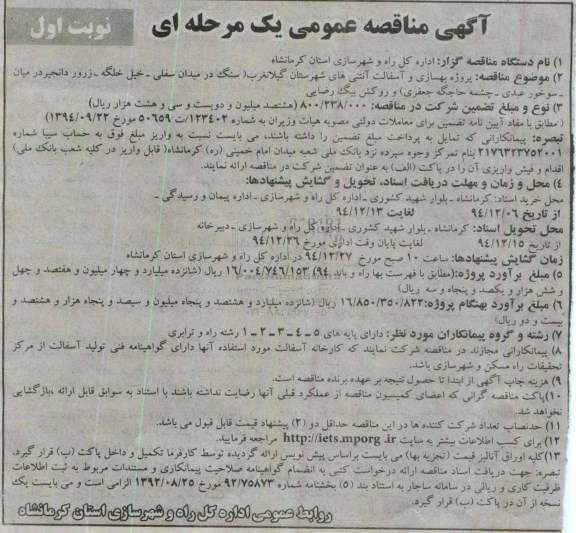 آگهی مناقصه عمومی یک مرحله ای
نوبت اول
۱) نام دستگاه مناقصه گزار: اداره کل راه و شهرسازی استان کرمانشاه
۲) موضوع مناقصه: پروژه بهسازی و آسفالت آنتنی های شهرستان گیلانغرب( سنگ در میدان سفلی - خیل خلگه - زرور دانجیردر میان
- سوخور عبدی - چشمه حاجگه جعفری) و روکش بیگ رضایی
۳) نوع و مبلغ تضمین شرکت در مناقصه: ۸۰۰/۲۳۸/۰۰۰ (هشتصد میلیون و دویست و سی و هشت هزار ریال)
( مطابق با مفاد آیین نامه تضمین برای معاملات دولتی مصوبه هیات وزیران به شماره ۱۲۳۴۰۲/ت ۵۰۶۵۹ مورخ ۱۳۹۴/۰۹/۲۲)
تبصره: پیمانکارانی که تمایل به پرداخت مبلغ تضمین را داشته باشند، می بایست نسبت به واریز مبلغ فوق به حساب سیبا شماره
۲۱۷۶۳۲۳۷۵۲۰۰۱ بنام تمرکز وجوه سپرده نزد بانک ملی شعبه میدان امام خمینی (ره) کرمانشاه( قابل واریز در کلیه شعب بانک ملی)
اقدام و فیش واریزی آن را در پاکت (الف) به عنوان تضمین شرکت در مناقصه ارائه نمایند.
۴) محل و زمان و مهلت دریافت اسناد، تحویل و گشایش پیشنهادها:
محل خرید اسناد: کرمانشاه - بلوار شهید کشوری - اداره کل راه و شهرسازی - اداره پیمان و رسیدگی -
از تاریخ ۹۴/۱۲/۰۶ لغایت ۹۴/۱۲/۱۳
محل تحویل اسناد: کرمانشاه - بلوار شهید کشوری - اداره کل راه و شهرسازی - دبیرخانه
از تاریخ ۹۴/۱۲/۱۵ لغایت پایان وقت اداری مورخ ۹۴/۱۲/۲۶
زمان گشایش پیشنهادها: ساعت ۱۰ صبح مورخ ۹۴/۱۲/۲۷ در اداره کل راه و شهرسازی استان کرمانشاه
۵) مبلغ برآورد پروژه:(مطابق با فهرست بها راه و باند ۹۴) ۱۶/۰۰۴/۷۴۶/۱۵۳ ریال (شانزده میلیارد و چهار میلیون و هفتصد و چهل
و شش هزار و یکصد و پنجاه و سه ریال)
۶) مبلغ برآورد بهنگام پروژه: ۱۶/۸۵۰/۳۵۰/۸۲۲ ریال (شانزده میلیارد و هشتصد و پنجاه میلیون و سیصد و پنجاه هزار و هشتصد و
بیست و دو ریال)
۷) رشته و گروه پیمانکاران مورد نظر: دارای پایه های ۵ - ۴ - ۳ - ۲ - ۱ رشته راه و ترابری
۸) پیمانکارانی مجازند در مناقصه شرکت نمایند که کارخانه آسفالت مورد استفاده آنها دارای گواهینامه فنی تولید آسفالت از مرکز
تحقیقات راه مسکن و شهرسازی باشد.
۹) هزینه چاپ آگهی از ابتدا تا حصول نتیجه بر عهده برنده مناقصه است.
۱۰)پاکت مناقصه گرانی که اعضای کمیسیون مناقصه از عملکرد قبلی آنها رضایت نداشته باشند با استناد به سوابق قابل ارائه ،بازگشایی
نخواهد شد.
۱۱) حدنصاب تعداد شرکت کننده ها در این مناقصه حداقل دو (۲) پیشنهاد قیمت قابل قبول می باشد.
۱۲) برای کسب اطلاعات بیشتر به سایت http://iets.mporg.ir مراجعه فرمایید.
۱۳)کلیه اوراق آنالیز قیمت (تجزیه بها) می بایست براساس پیش نویس ارائه گردیده توسط کارفرما تکمیل و داخل پاکت (ب) قرار گیرد.
تبصره: جهت دریافت اسناد مناقصه ارائه درخواست کتبی به انضمام گواهینامه صلاحیت پیمانکاری و مستندات مربوط به ثبت اطلاعات
ظرفیت کاری و ریالی در سامانه ساجار به استناد بند (۵) بخشنامه شماره ۹۲/۷۵۸۷۳ مورخ ۱۳۹۲/۰۸/۲۵ الزامی است و می بایست یک
نسخه از آن در پاکت (ب) قرار گیرد.
روابط عمومی اداره کل راه و شهرسازی استان کرمانشاه